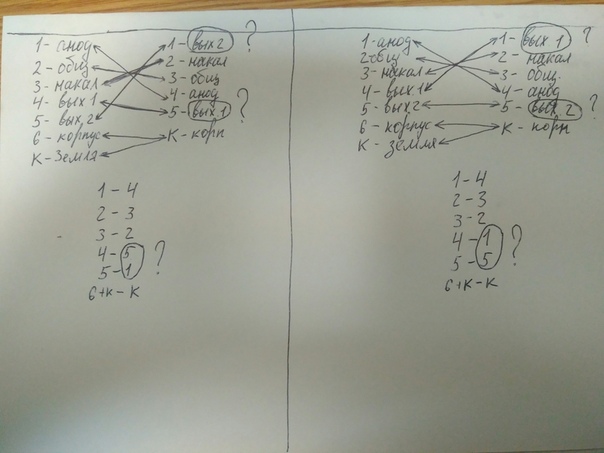 1 - анод
2 - общ
3 - накал
4 - вых 1
5 - вых 2
6 - корпус
К - Земля
1 - вых 2 ?
2 - накал
3 - общ
4 - анод
5 - вых 1 ?
К - корп
1 - 4
2 - 3
3 - 2
4 - 5
5 - 1 ?
6+К - К
1 - анод
2 - общ
3 - накал
4 - вых 1
5 - вых 2
6 - корпус
К - земля
1 - вых 1 ?
2 - накал
3 - общ.
4 - анод
5 - вых 2 ?
К - корп
1 - 4
2 - 3
3 - 2
4 - 1
5 - 5 ?
6+К - К